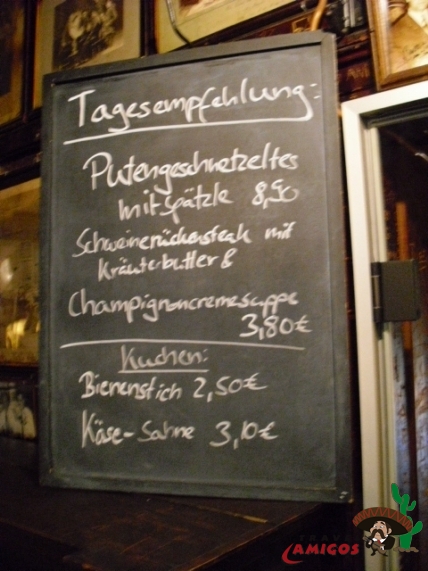 Tagesempfehlung:
Putengeschnetzeltes
mit Spätzle 8,50
Schweinerückensteak mit
Kräuterbutter &
Champignoncremesuppe
3,80€
Kuchen:
Bienenstich 2,50€
Käse-Sahne 3,10€
TRAVEL
AMIGOS